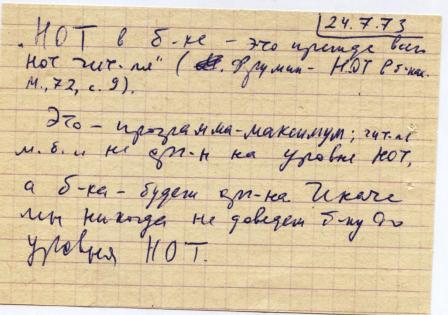 24.7.73
„НОТ в б-ке – это прежде всего
НОТ чит-ля" (Фрумин – НОТ в б-ках.
М., 72, с. 9).
Это – программа-максимум; чит-ль
м.б. и не орг-н на уровне НОТ,
а б-ка – будет орг-на. Иначе
мы никогда не доведем б-ку до
уровня НОТ.